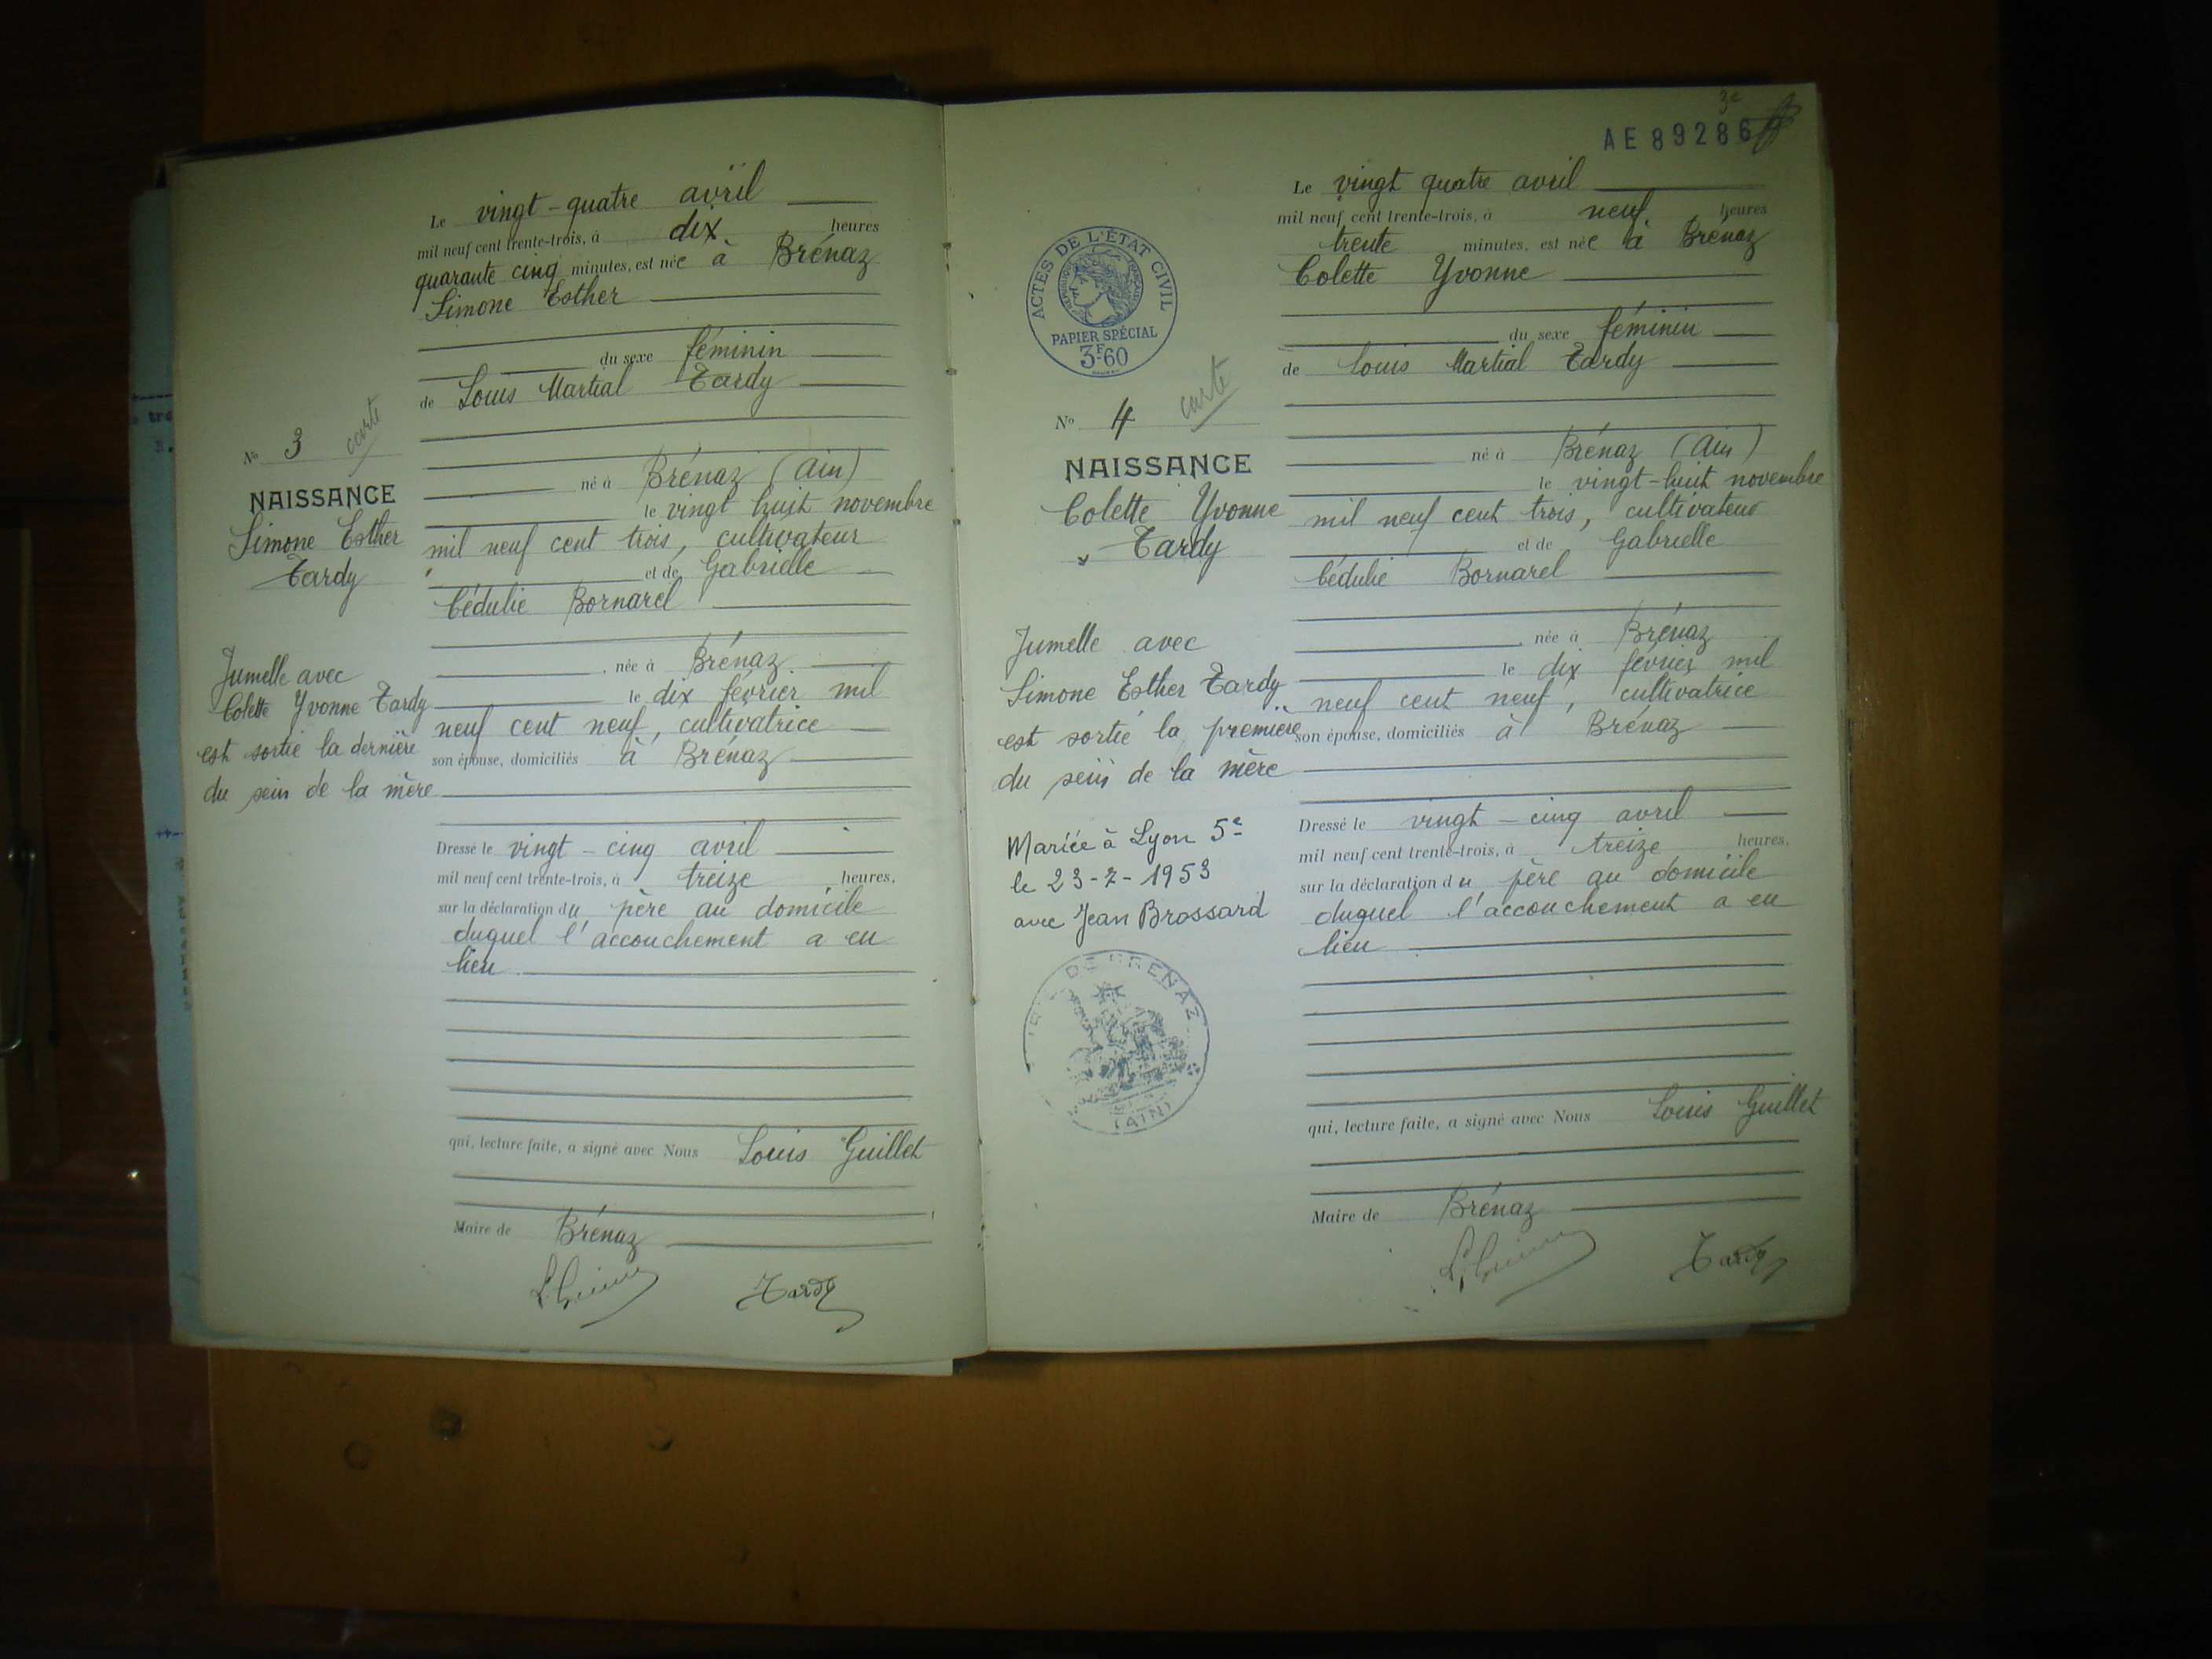 Le vingt-quatre avril
mil neuf cent trente-trois, à dix heures
quarante cinq minutes, est née à Brénaz
Simone Esther
du sexe féminin
de Louis Martial Tardy
N° 3 carte
né à Brénaz (Ain)
NAISSANCE
le vingt huit novembre
Simone Esther
mil neuf cent trois, cultivateur
Tardy
et de Gabrielle
Cédulie Bornarel
née à Brénaz
Jumelle avec
le dix février mil
Colette Yvonne Tardy
neuf cent neuf, cultivatrice
est sortie la dernière
son épouse, domiciliés à Brénaz
du sein de la mère
Dressé le vingt-cinq avril
mil neuf cent trente-trois, à treize heures,
sur la déclaration du père au domicile
duquel l'accouchement a eu
lieu
qui, lecture faite, a signé avec Nous Louis Guillet
Maire de Brénaz
Tardy
3e
AE 89286
Le vingt quatre avril
mil neuf cent trente-trois, à neuf heures
trente minutes, est née à Brénaz
Colette Yvonne
ACTES DE L'ÉTAT CIVIL
PAPIER SPÉCIAL
3F60
du sexe féminin
de Louis Martial Tardy
N° 4 carte
né à Brénaz (Ain)
NAISSANCE
le vingt-huit novembre
Colette Yvonne
mil neuf cent trois, cultivateur
Tardy
et de Gabrielle
Cédulie Bornarel
née à Brénaz
Jumelle avec
le dix février mil
Simone Esther Tardy
neuf cent neuf, cultivatrice
est sortie la première
son épouse, domiciliés à Brénaz
du sein de la mère
Dressé le vingt-cinq avril
Mariée à Lyon 5e
mil neuf cent trente-trois, à treize heures,
le 23-7-1953
sur la déclaration du père au domicile
avec Jean Brossard
duquel l'accouchement a eu
lieu
DE BRENAZ
(AIN)
qui, lecture faite, a signé avec Nous Louis Guillet
Maire de Brénaz
Tardy